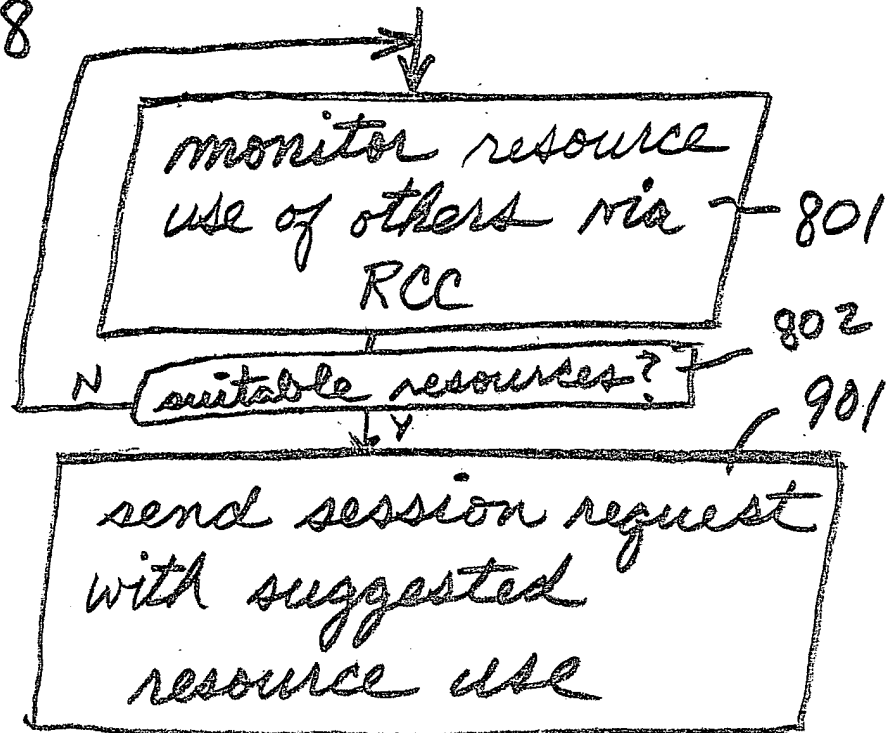 8
monitor resource
use of others via
801
RCC
802
N
suitable resources?
901
Y
send session request
with suggested
resource use